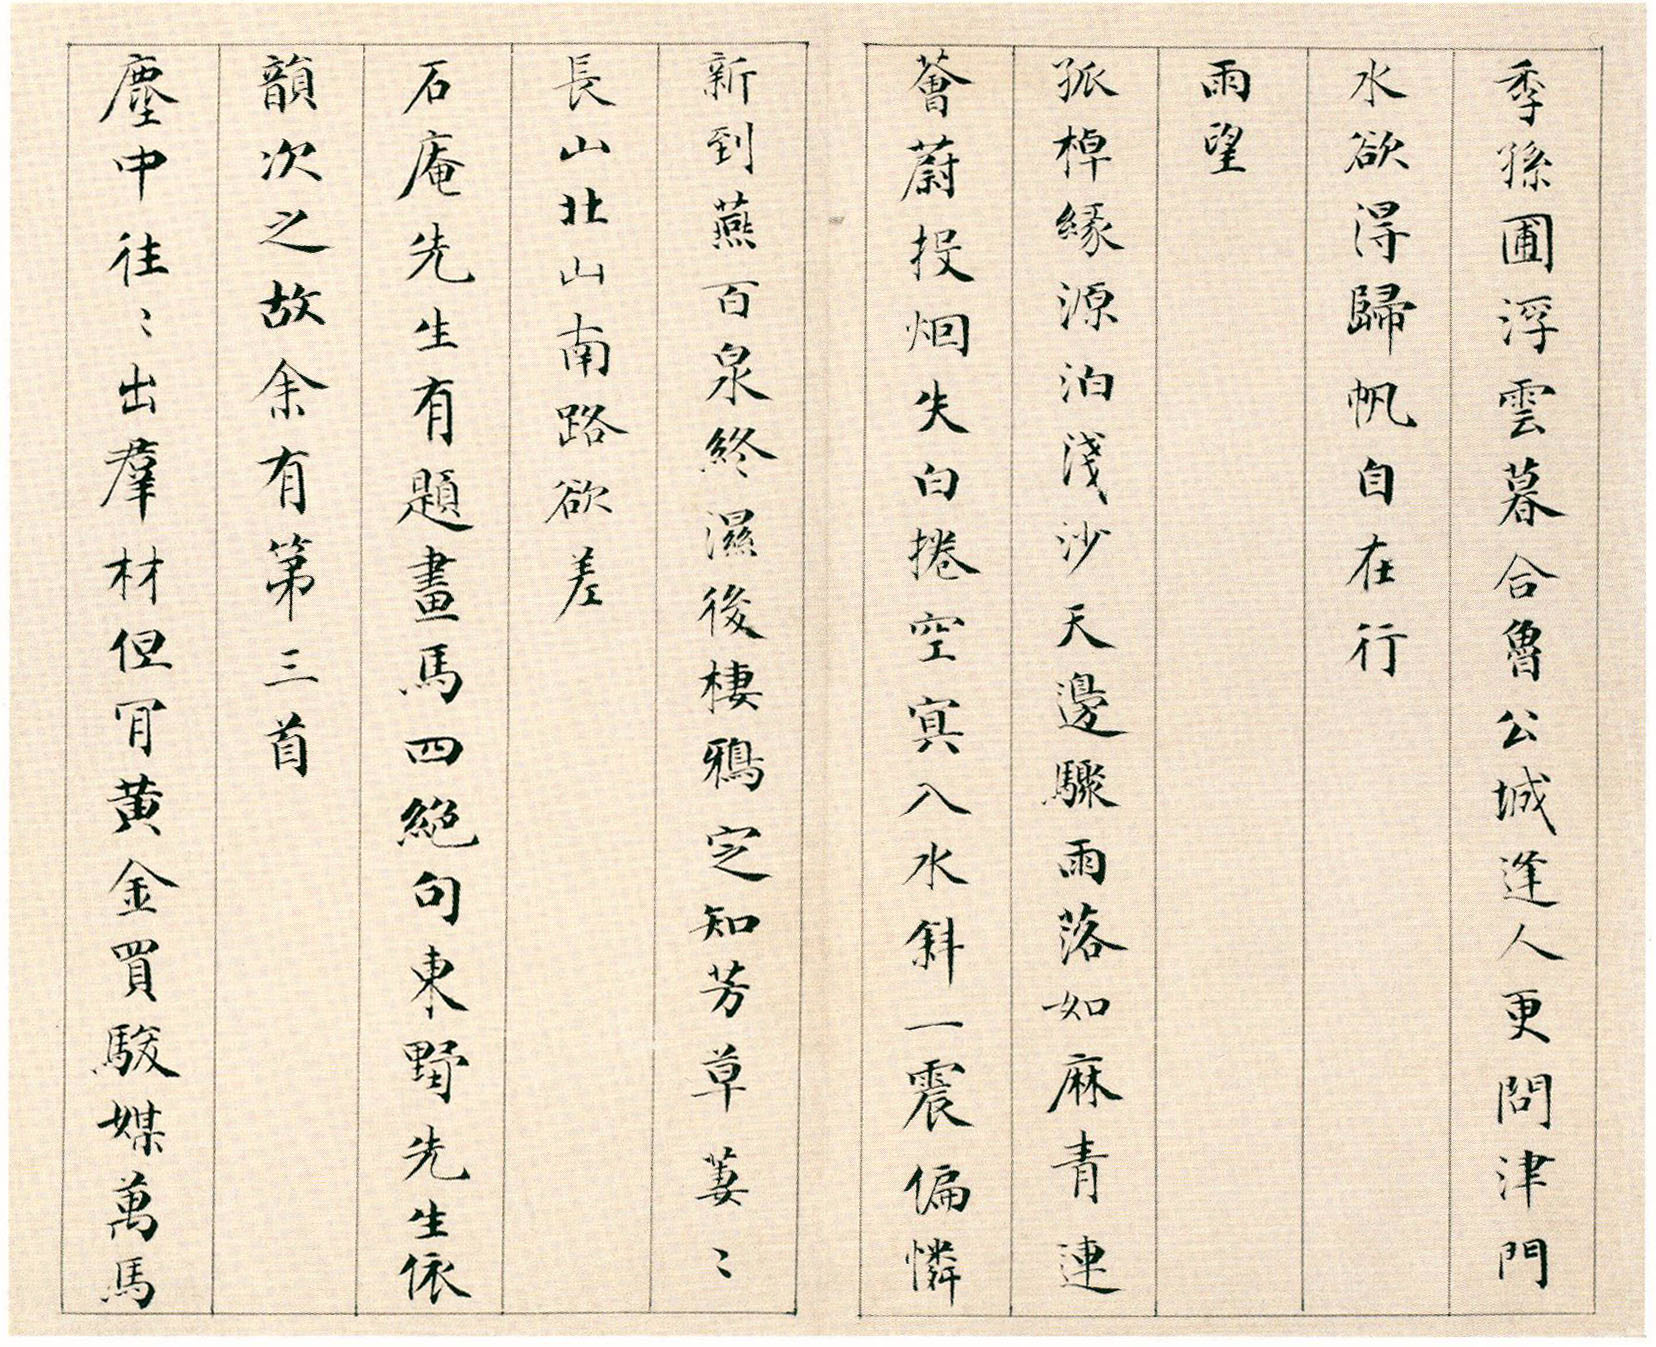 季孫圃浮雲暮合魯公城逢人更問津門
水欲得歸帆自在行
雨望
孤棹緣源泊淺沙天邊驟雨落如麻青連
薈蔚投烟失白捲空冥入水斜一震偏憐
新到燕百泉終濕後棲鴉定知芳草萋〻
長山北山南路欲差
石庵先生有題畫馬四絕句東野先生依
韻次之故余有第三首
塵中往〻出羣材但肎黄金買駿媒萬馬